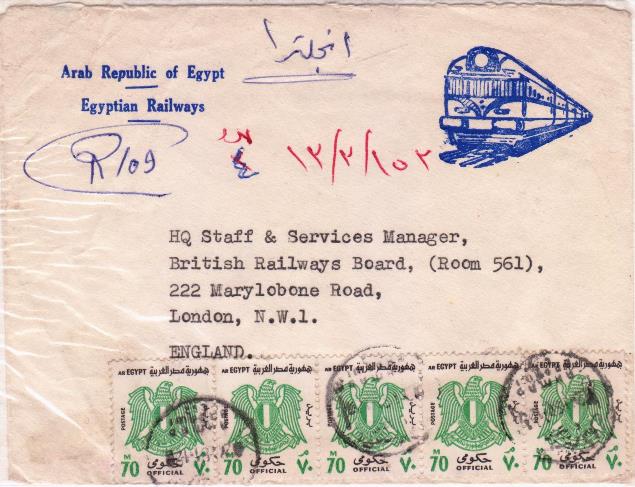 انجلترا
Arab Republic of Egypt
Egyptian Railways
R/109
١٣/٣/١٥٣
HQ Staff & Services Manager,
British Railways Board, (Room 561),
222 Marylobone Road,
London, N.W.1.
ENGLAND.
AR EGYPT جمهورية مصر العربية
POSTAGE
M 70 حكومى ٧٠
OFFICIAL
AR EGYPT جمهورية مصر العربية
POSTAGE
M 70 حكومى ٧٠
OFFICIAL
AR EGYPT جمهورية مصر العربية
POSTAGE
M 70 حكومى ٧٠
OFFICIAL
AR EGYPT جمهورية مصر العربية
POSTAGE
M 70 حكومى ٧٠
OFFICIAL
AR EGYPT جمهورية مصر العربية
M 70 حكومى ٧٠
OFFICIAL